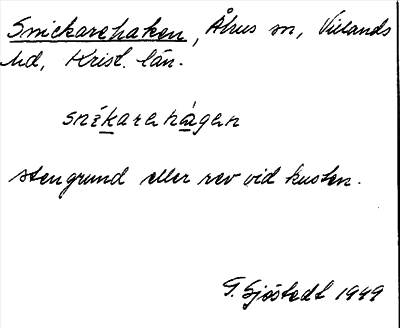 Snickarehaken, Åhus sn, Villands
hd, Krist. län.
snikarehågen
stengrund eller rev vid kusten.
G. Sjöstedt 1949